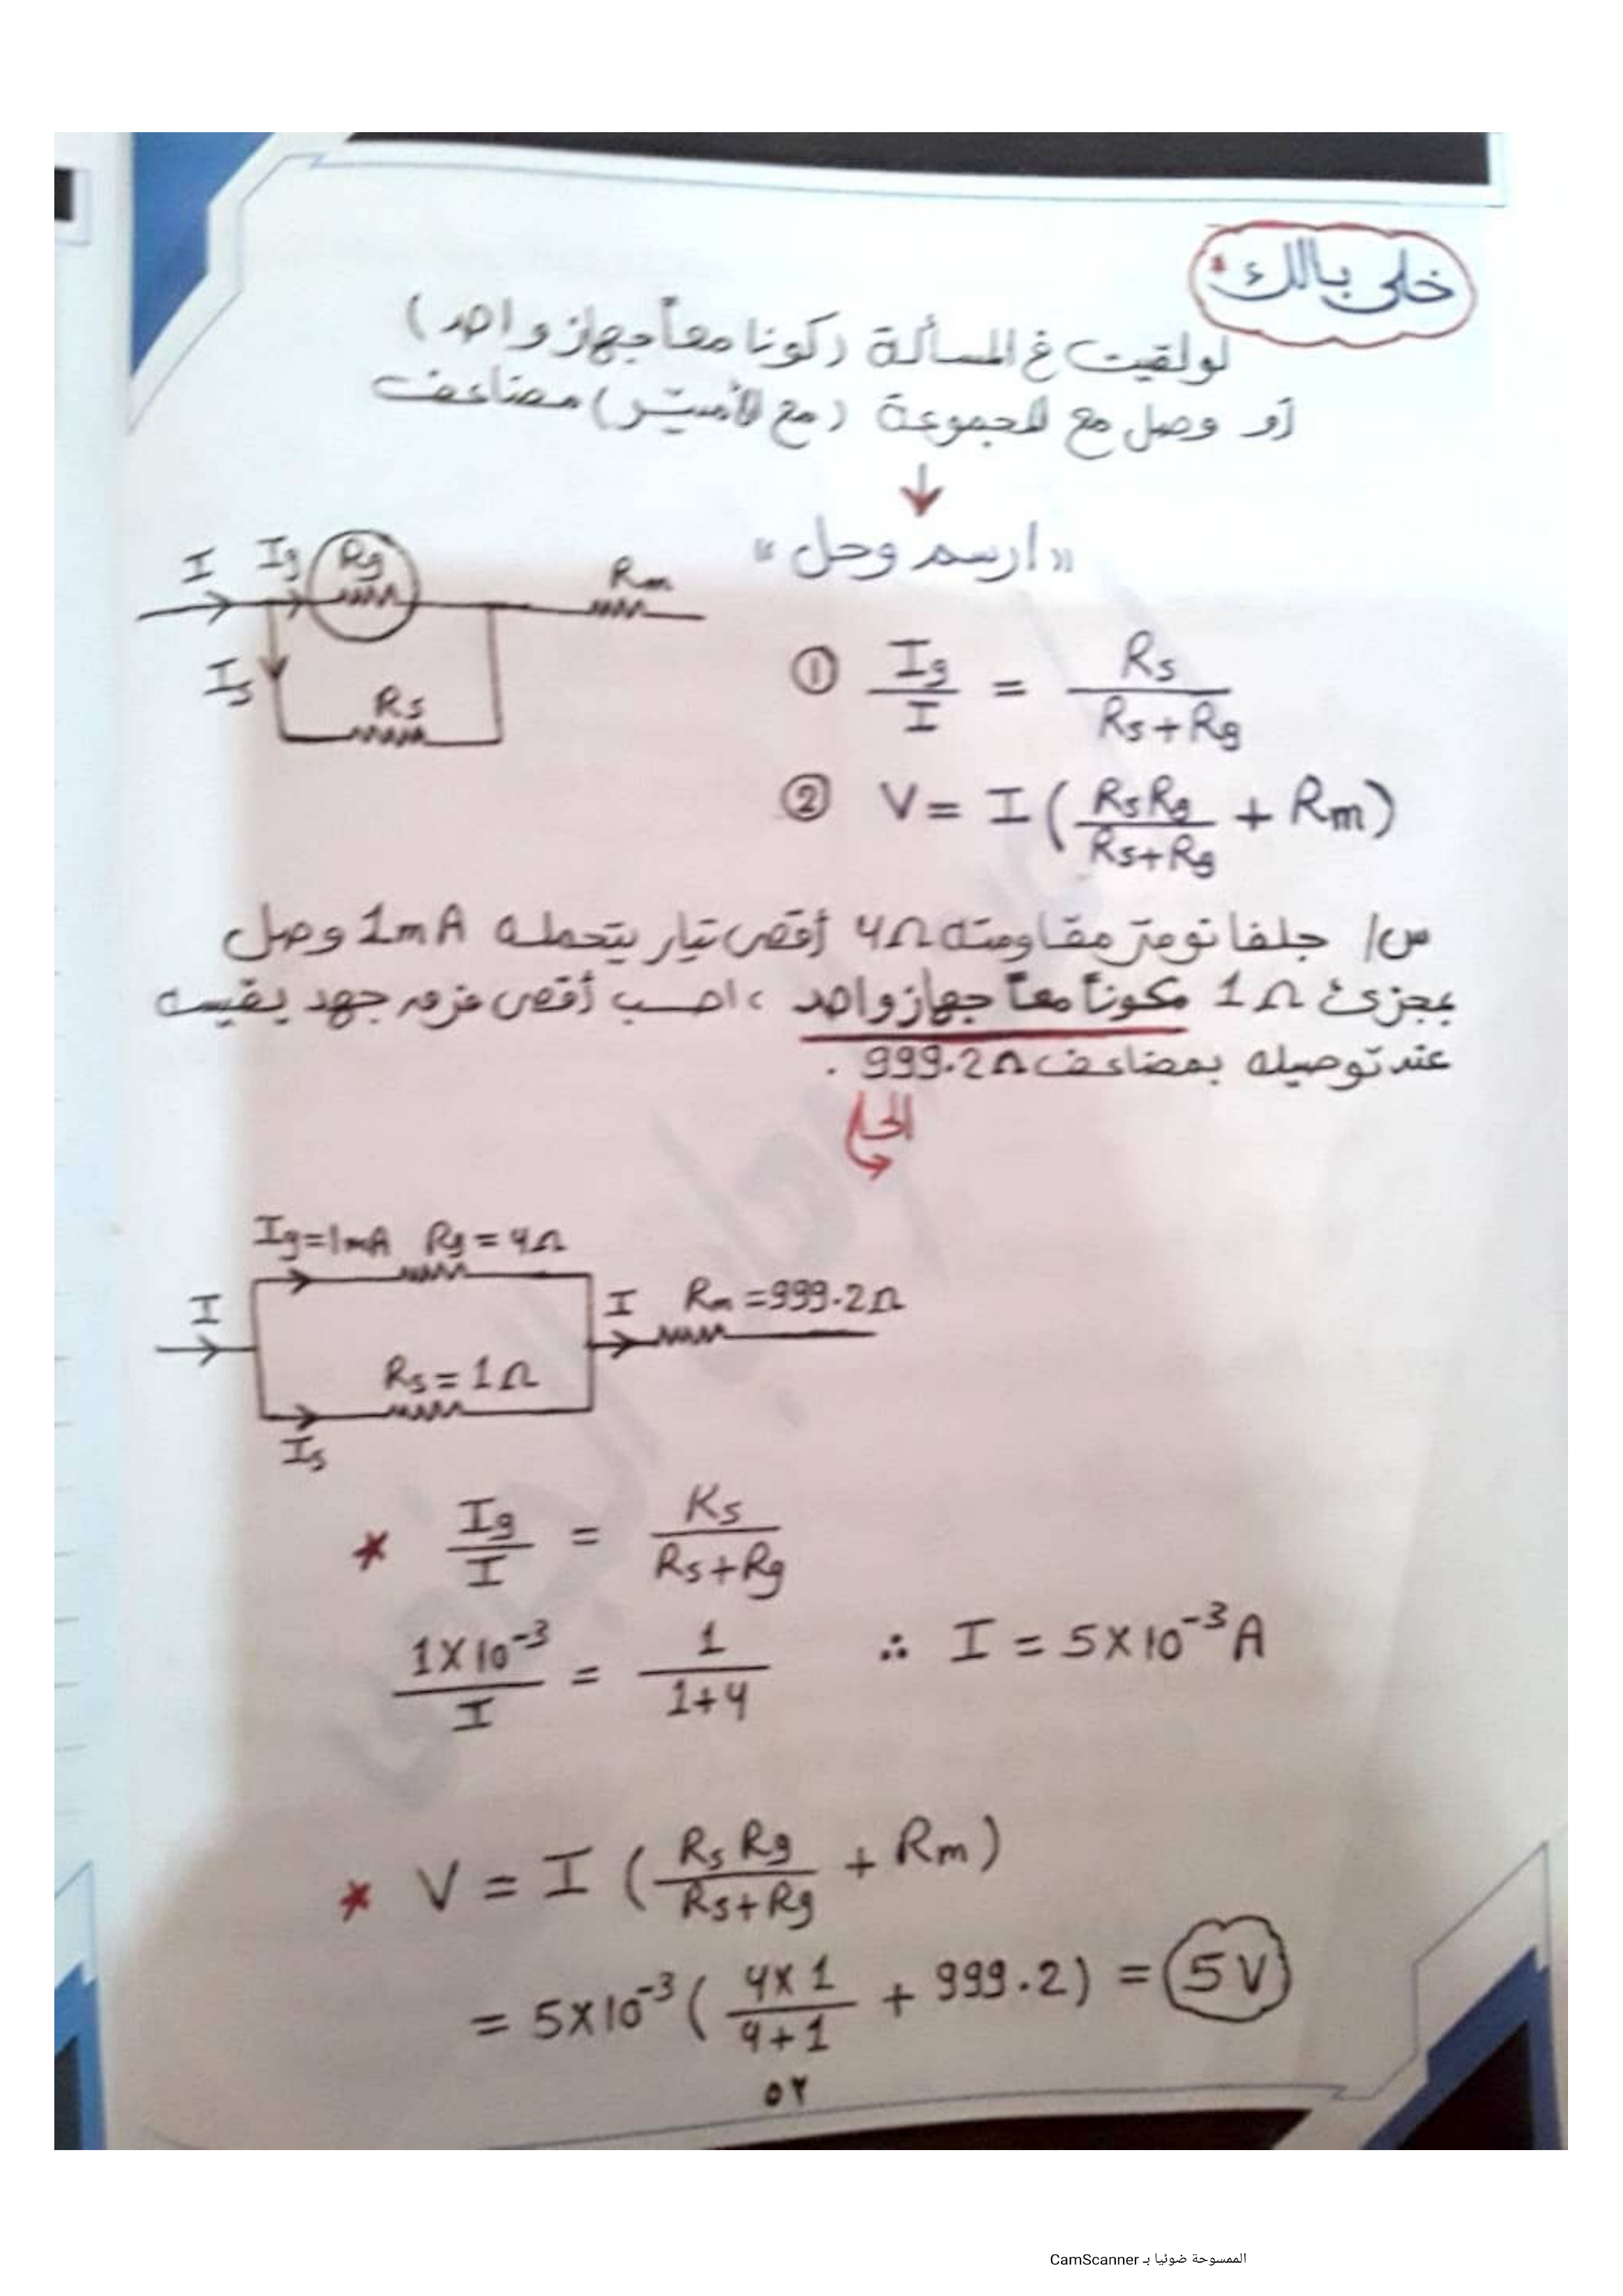 خلى بالك
لو لقيت في المسألة (كونا معاً جهاز واحد)
أو وصل مع المجموعة (مع الأميتر) مضاعف
↓
«ارسم وحل»
I Ig Rg Rm
Is
Rs
① Ig/I = Rs/(Rs+Rg)
② V = I (RsRg/(Rs+Rg) + Rm)
س/ جلفانومتر مقاومته 4Ω أقصى تيار يتحمله 1mA وصل
بمجزئ 1Ω مكوناً معاً جهاز واحد ، احسب أقصى فرق جهد يقيسه
عند توصيله بمضاعف 999.2Ω .
الحل
Ig=1mA Rg=4Ω
I I Rm=999.2Ω
Rs=1Ω
Is
* Ig/I = Rs/(Rs+Rg)
1X10⁻³/I = 1/(1+4) ∴ I = 5X10⁻³A
* V = I (Rs Rg/(Rs+Rg) + Rm)
= 5X10⁻³ (4X1/(4+1) + 999.2) = 5V
٥٢
الممسوحة ضوئيا بـ CamScanner